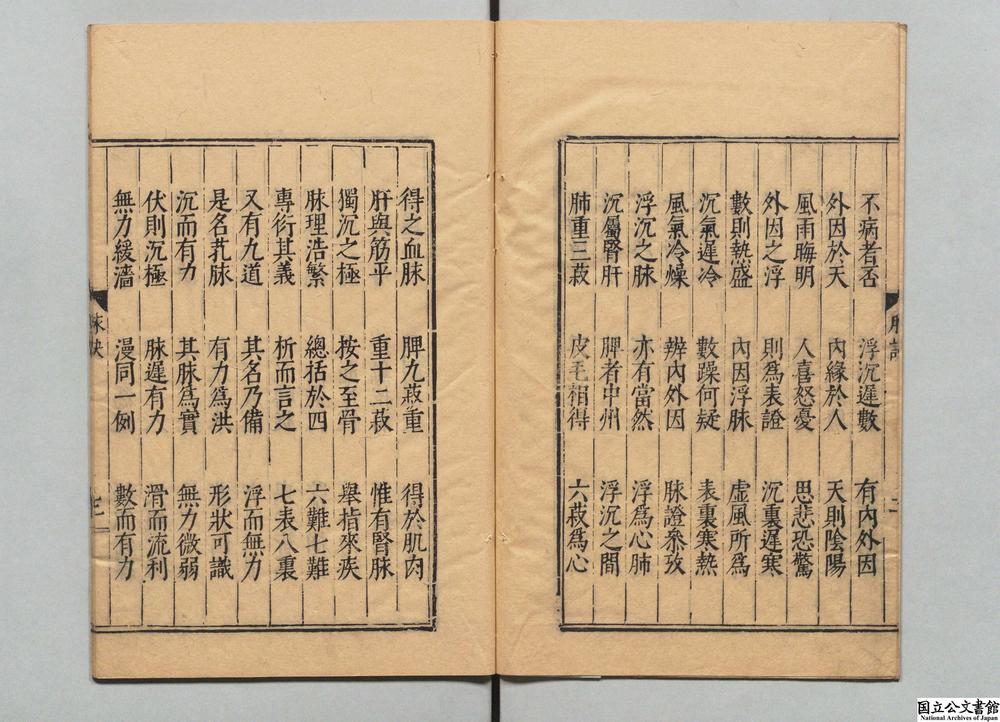 不病者否 浮沉遲數 有內外因
外因於天 內緣於人 天則陰陽
風雨晦明 人喜怒憂 思悲恐驚
外因之浮 則爲表證 沉裏遲寒
數則熱盛 內因浮脉 虛風所爲
沉氣遲冷 數躁何疑 表裏寒熱
風氣冷燥 辨內外因 脉證參攷
浮沉之脉 亦有當然 浮爲心肺
沉屬腎肝 脾者中州 浮沉之間
肺重三菽 皮毛相得 六菽爲心
二
得之血脉 脾九菽重 得於肌肉
肝與筋平 重十二菽 惟有腎脉
獨沉之極 按之至骨 舉指來疾
脉理浩繁 總括於四 六難七難
專衍其義 析而言之 七表八裏
又有九道 其名乃備 浮而無力
是名芤脉 有力爲洪 形狀可識
沉而有力 其脉爲實 無力微弱
伏則沉極 脉遲有力 滑而流利
無力緩濇 漫同一例 數而有力
脉訣
三
国立公文書館
National Archives of Japan